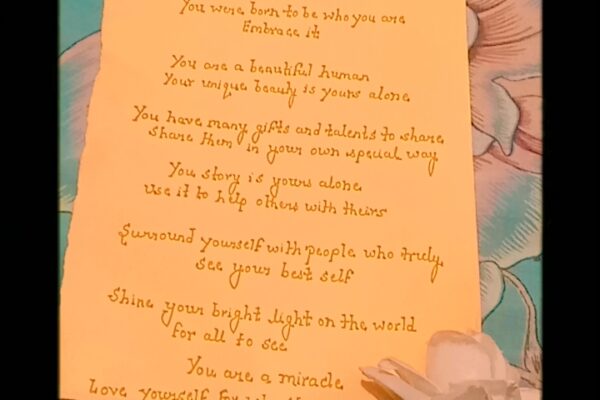 You were born to be who you are
Embrace it
You are a beautiful human
Your unique beauty is yours alone
You have many gifts and talents to share
Share them in your own special way
You story is yours alone
use it to help others with theirs
Surround yourself with people who truly
see your best self
Shine your bright light on the world
for all to see
You are a miracle
Love yourself for